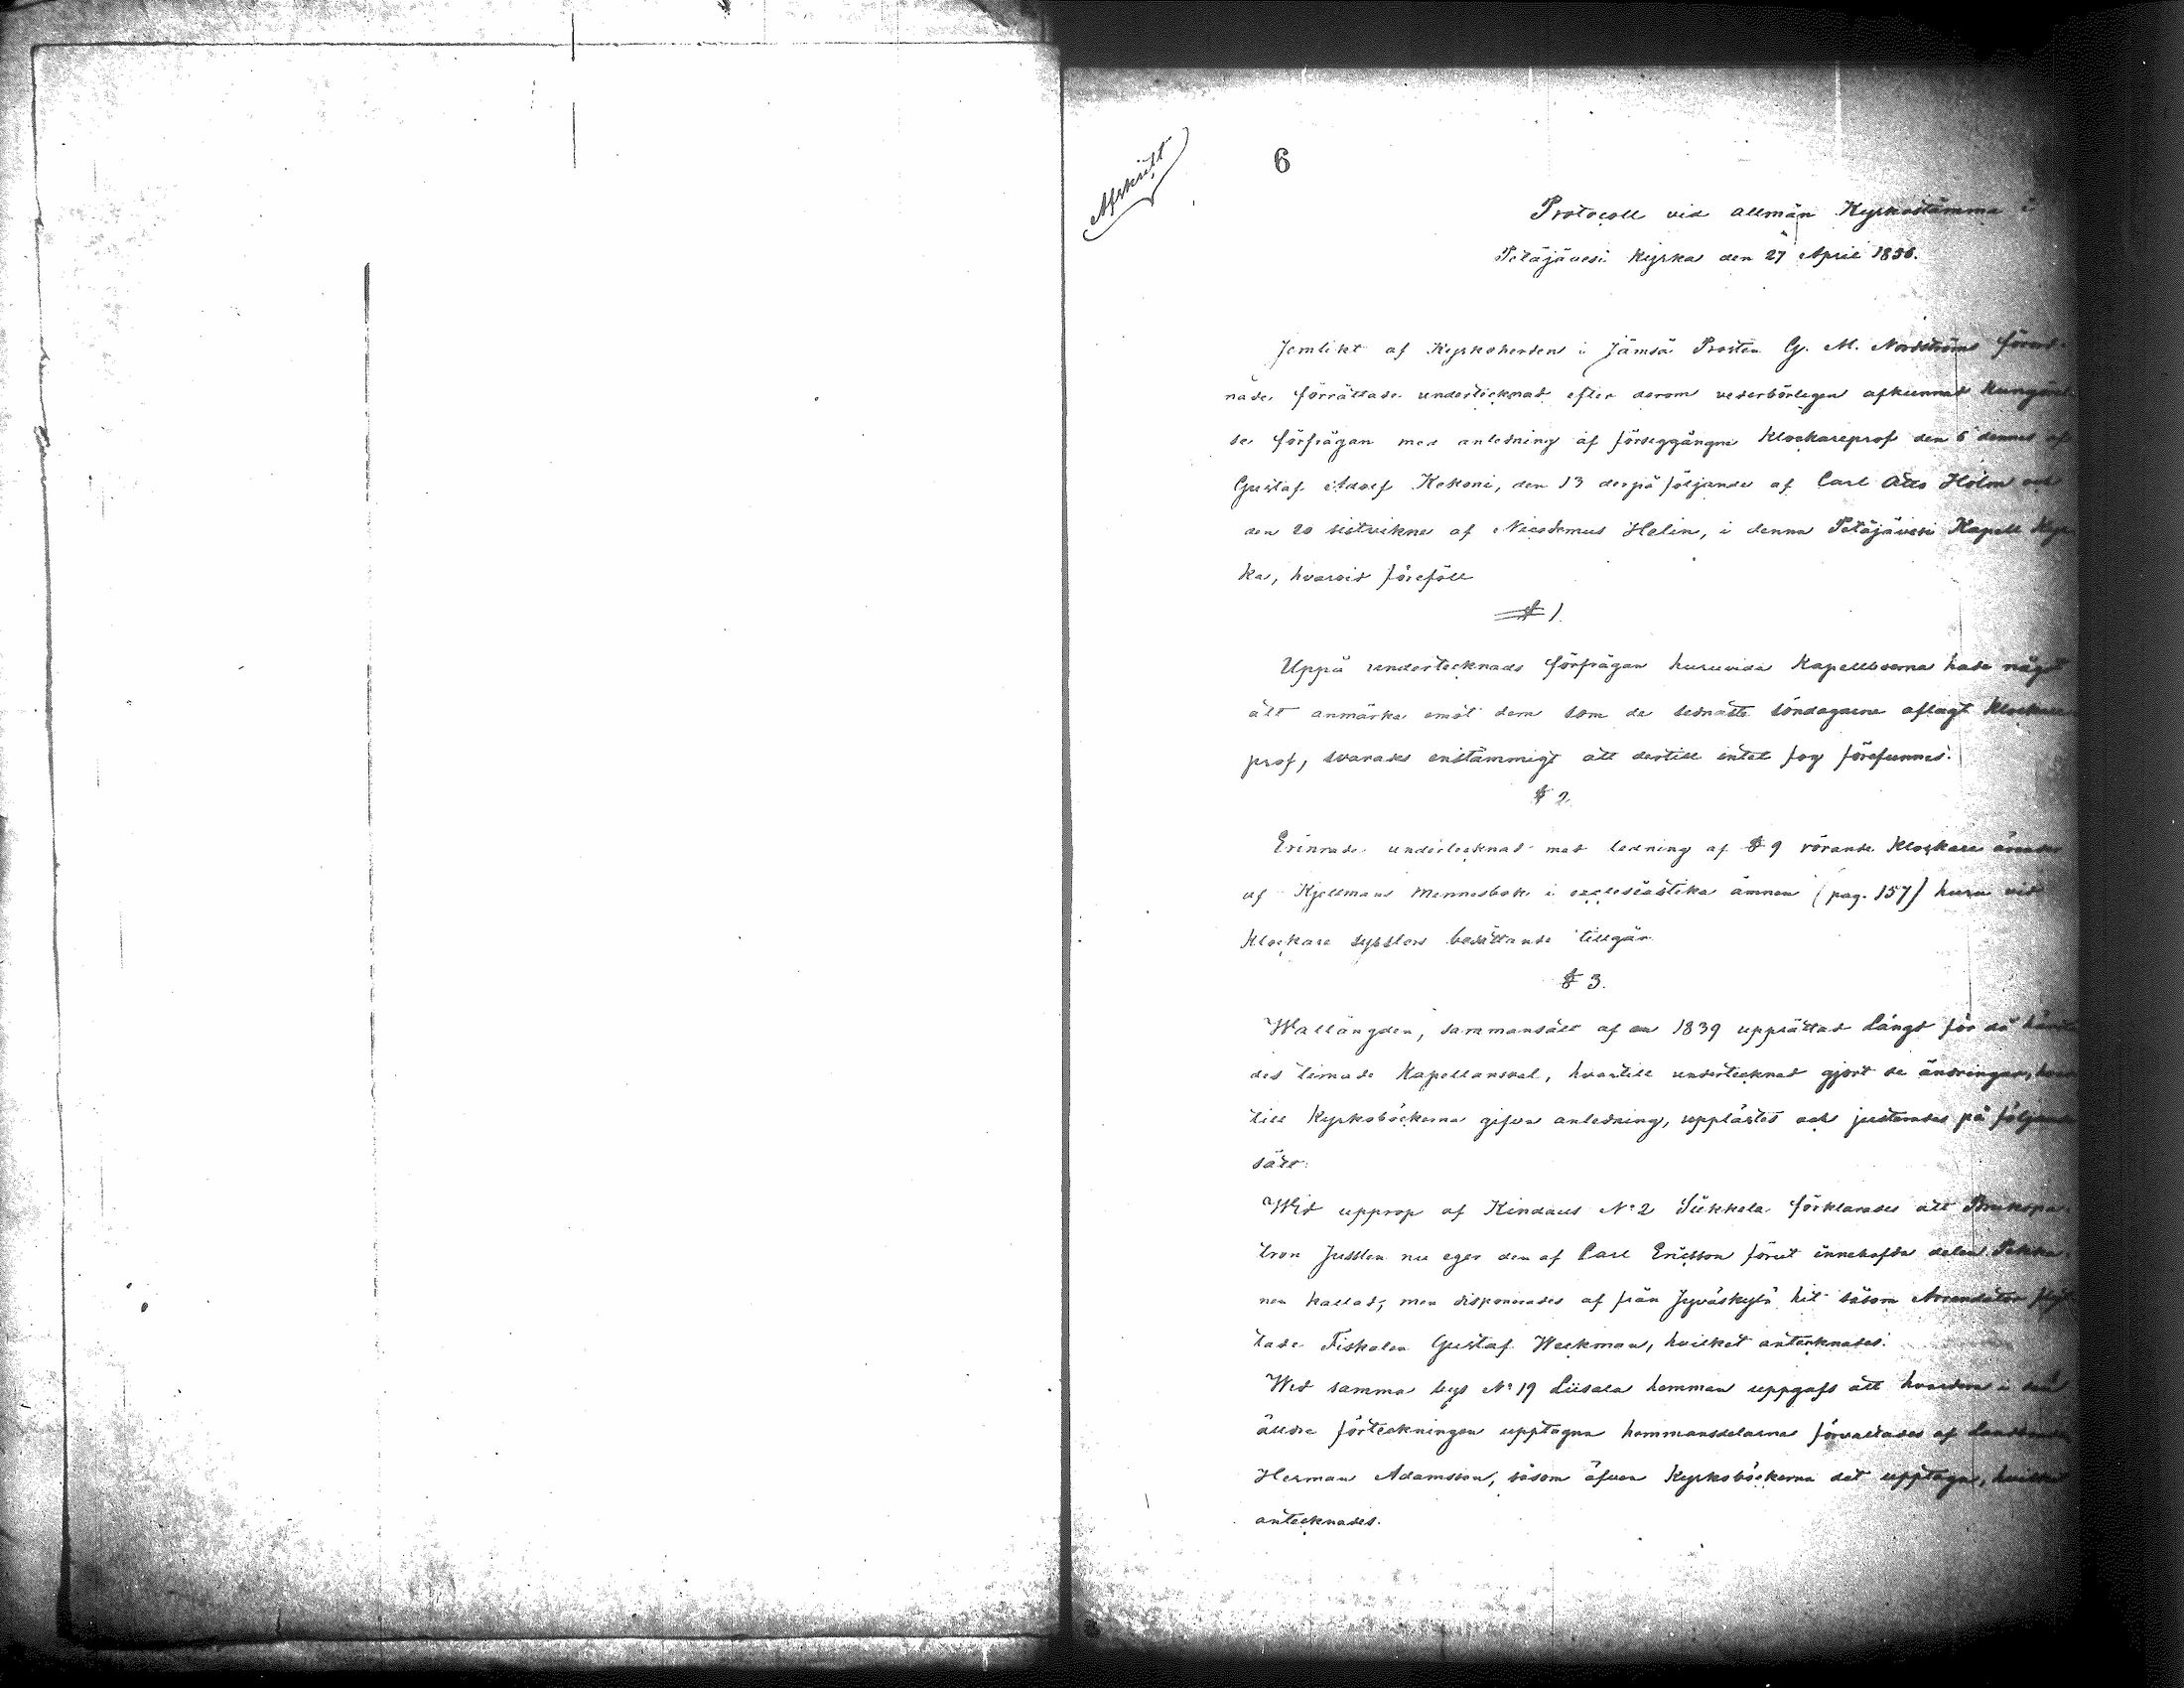 Afskrift
6
Protocoll vid allmän Kyrkostämma i
Petäjävesi Kyrka den 27 April 1856.
Jemlikt af Kyrkoherden i Jämsä Prosten G. M. Nordströms förord-
nade förrättade undertecknad efter derom vederbörligen afkunnad Kungörel-
se förfrågan med anledning af föregångne Klockareprof den 6 dennes af
Gustaf Adolf Kekoni, den 13 derpå följande af Carl Otto Holm och
den 20 sistvikne af Nicodemus Helin, i denna Petäjävesi Kapell Kyr-
ka, hvarvid förefóll
§ 1.
Uppå undertecknads förfrågan huruvida Kapellboerna hade någt
att anmärka emot dem som de sednaste söndagarne aflagt Klockare
prof, svarades enstämmigt att dertill intet fog förefunnes.
§ 2.
Erinrade undertecknad med ledning af § 9 rörande Klockare ärender
af Kjellmans Minnesbok i ecclesiastika ämnen (pag. 157) huru vid
Klockare sysslors besättande tillgår
§ 3.
Wallängden, sammansatt af en 1839 upprättad Längd för då hän-
des timade Kapellansval, hvartill undertecknad gjort de ändringar, hvar
till Kyrkoböckerna gifva anledning, upplästes och justerades på följande
sätt:
Wid upprop af Kindaus No 2 Sikkela förklarades att Brukspa-
tron Jusslen nu eger den af Carl Ericsson förut innehafda delen Pekka-
nen kallad, men disponerades af från Jyväskylä hit såsom Arrendator flyt
tade Fiskalen Gustaf Weckman, hvilket antecknades.
Wid samma by No 19 Liisala hemman uppgafs att hvardera i den
äldre förteckningen upptagna hemmansdelarna förvaltades af
Herman Adamsson, såsom äfven Kyrkoböckerna det upptaga, hvilket
antecknades.